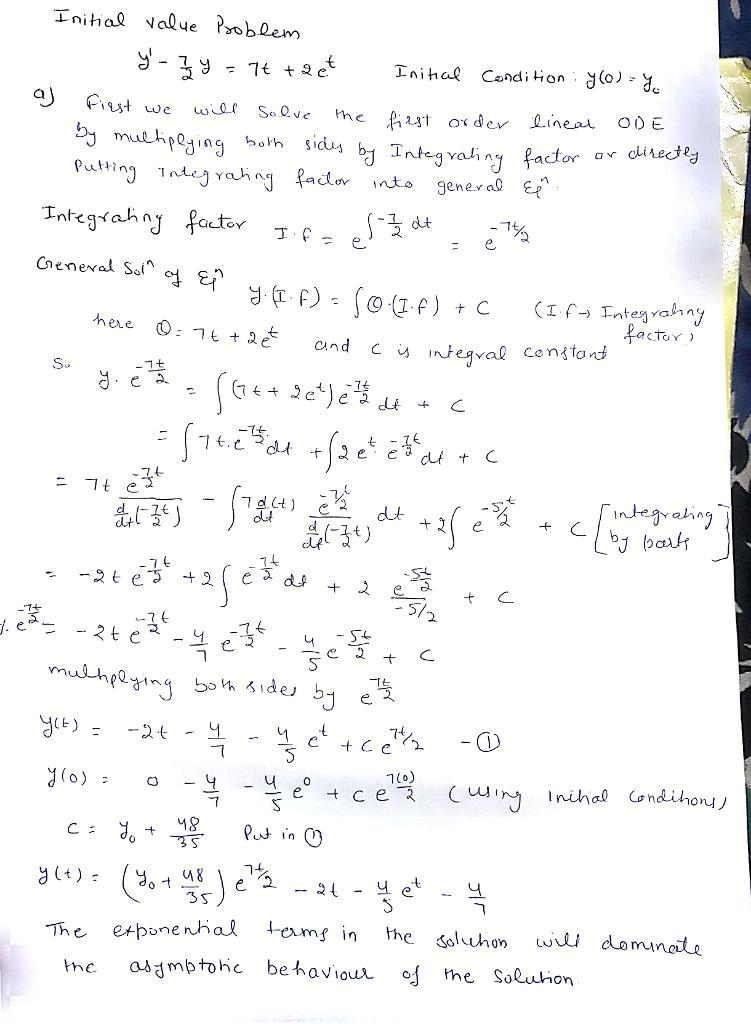 Initial value Problem
y' - 7/2 y = 7t + 2e^t Initial Condition: y(0) = y₀
a) First we will solve the first order linear ODE
by multiplying both sides by Integrating factor or directly
Putting Integrating factor into general Eqⁿ.
Integrating factor I.f = e^(∫-7/2 dt) = e^(-7t/2)
General Solⁿ of Eqⁿ
y.(I.f) = ∫Q.(I.f) + C (I.f → Integrating factor)
here Q = 7t + 2e^t and c is integral constant
So y.e^(-7t/2) = ∫(7t + 2e^t)e^(-7t/2) dt + C
= ∫7t.e^(-7t/2) dt + ∫2e^t e^(-7t/2) dt + C
= 7t e^(-7t/2) / (d/dt(-7t/2)) - ∫7 d(t)/dt e^(-7t/2) / (d/dt(-7/2 t)) dt + 2∫e^(-5t/2) + C [integrating by parts]
= -2t e^(-7t/2) + 2∫e^(-7t/2) dt + 2 e^(-5t/2) / (-5/2) + C
y.e^(-7t/2) = -2t e^(-7t/2) - 4/7 e^(-7t/2) - 4/5 e^(-5t/2) + C
multiplying both sides by e^(7t/2)
y(t) = -2t - 4/7 - 4/5 e^t + c e^(7t/2) - ①
y(0) = 0 - 4/7 - 4/5 e^0 + c e^(7(0)/2) (using initial conditions)
C = y₀ + 48/35 Put in ①
y(t) = (y₀ + 48/35) e^(7t/2) - 2t - 4/5 e^t - 4/7
The exponential terms in the solution will dominate
the asymptotic behaviour of the solution.